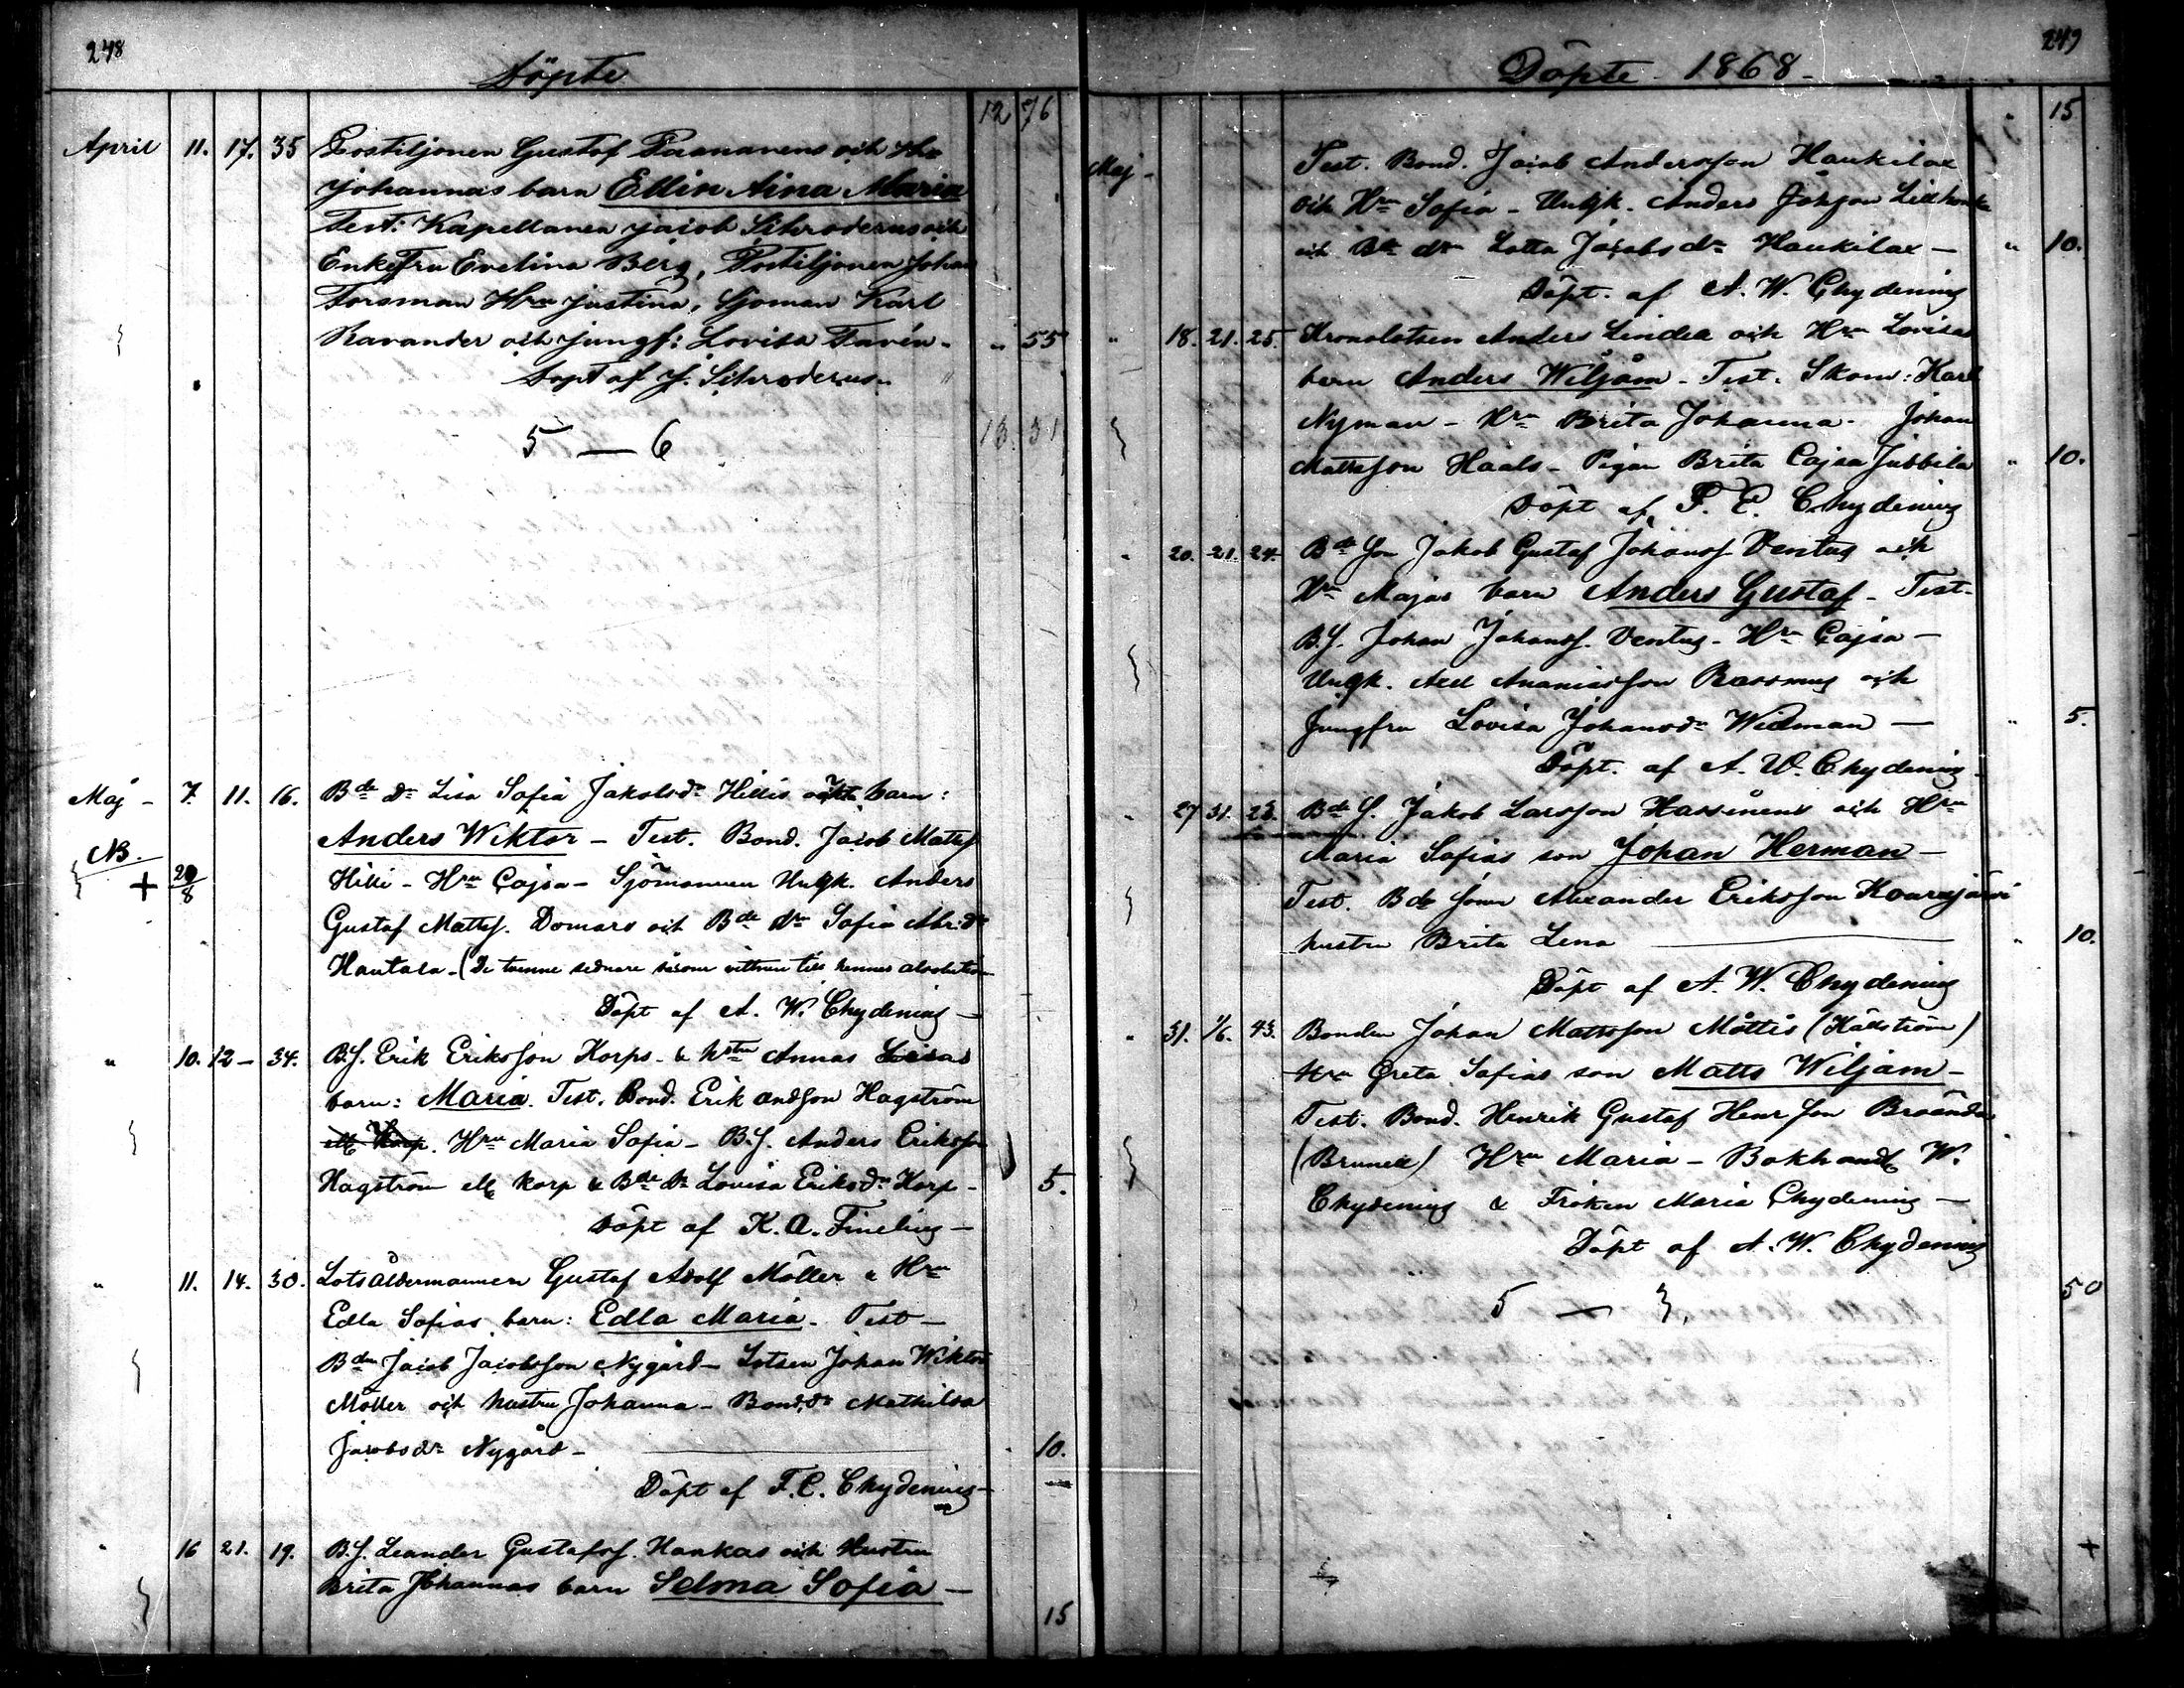 248
Döpte
12 76
April 11. 17. 35 Postiljonen Gustaf Paananens och H:u
Johannas barn Ellin Aina Maria
Test: Kapellanen Jacob Schroderus och
Enkefru Evelina Berg, Postiljonen Johan
Forsman H:ru Justina, Sjöman Karl
Ravander och jungf: Lovisa Favén - " 55
Döpt af J. Schroderus.
5 — 6
13. 31
Maj - 7. 11. 16. B:de D:r Lisa Sofia Jakobsd:r Hillis oäkta barn:
Anders Wiktor - Test. Bond. Jacob Mattsf
NB. + 29/8 Hilli - H:ru Cajsa - Sjömannen Ungk. Anders
Gustaf Mattsf. Domars och B:de D:r Sofia Abr:d:r
Hautala - (De tvenne sednare såsom vittnen till hennes absolution
Döpt af A. W. Chydenius -
" 10. 12 - 34. B.S. Erik Eriksson Korps - & h:stru Annas Lisas
barn: Maria. Test. Bond. Erik Andsson Hagström
ell Korp. H:ru Maria Sofia - B.S. Anders Eriksson
Hagström ell Korp & B:de D:r Lovisa Eriksd:r Korp - 5.
Döpt af K. A. Finelius -
" 11. 14. 30. Lotsåldermannen Gustaf Adolf Möller & H:ru
Edla Sofias barn: Edla Maria - Test -
B:den Jacob Jacobsson Nygård - Lotsen Johan Wiktor
Möller och hustru Johanna - Bond.d:r Mathilda
Jacobsd:r Nygård - 10.
Döpt af F. C. Chydenius -
" 16 21. 19. B.S. Leander Gustafsf. Hankas och Hustru
Brita Johannas barn Selma Sofia -
15
249
Döpte - 1868 -
" 15
Maj - Test. Bond. Jacob Andersson Haukilax
och H:ru Sofia - Ungk. Anders Johsson
och B:de d:r Lotta Jacobsd:r Haukilax - " 10.
Döpt. af A. W. Chydenius
" 18. 21. 25. Kronolotsen Anders Lindla och H:ru Lovisas
barn Anders Wiljåm - Test. Skom: Karl
Nyman - H:ru Brita Johanna - Johan
Mattsson Haals - Pigan Brita Cajsa Jubbila " 10.
Döpt af F. C. Chydenius
" 20. 21. 24. B:de Son Jakob Gustaf Johansf Ventus och
H:ru Majas barn Anders Gustaf - Test -
B.S. Johan Johansf. Ventus - H:ru Cajsa -
Ungk. Axel Ananiasson Rassmus och
Jungfru Lovisa Johansd:r Widman - " 5.
Döpt. af A. W. Chydenius -
" 27 31. 23. B:de S. Jakob Larsson Hassinens och H:ru
Maria Sofias son Johan Herman -
Test. Bde Sonen Alexander Eriksson
hustru Brita Lena " 10.
Döpt af A. W. Chydenius
" 31. 1/6. 43. Bonden Johan Mattsson Måttis (Källström)
H:ru Greta Sofias son Matts Wiljam -
Test. Bond. Henrik Gustaf Henrsson
(Brunell) H:ru Maria - Bokhandl W.
Chydenius & Fröken Maria Chydenius -
Döpt af A. W. Chydenius
5 — 3. 50